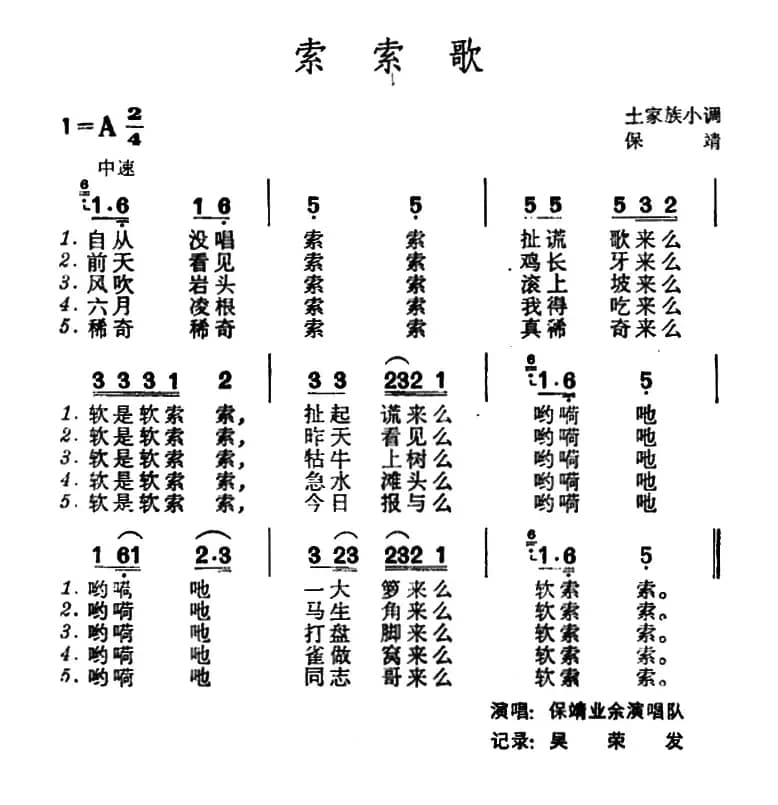 索索歌
1=A 2/4
土家族小调
保靖
中速
6
1·6 1 6 | 5 5 | 5 5 5 3 2
1. 自从 没唱 索 索 扯谎 歌来么
2. 前天 看见 索 索 鸡长 牙来么
3. 风吹 岩头 索 索 滚上 坡来么
4. 六月 凌根 索 索 我得 吃来么
5. 稀奇 稀奇 索 索 真稀 奇来么
6
3 3 3 1 2 | 3 3 232 1 | 1·6 5
1. 软是软索 索, 扯起 谎来么 哟嗬 吔
2. 软是软索 索, 昨天 看见么 哟嗬 吔
3. 软是软索 索, 牯牛 上树么 哟嗬 吔
4. 软是软索 索, 急水 滩头么 哟嗬 吔
5. 软是软索 索, 今日 报与么 哟嗬 吔
6
1 61 2·3 | 3 23 232 1 | 1·6 5
1. 哟嗬 吔 一大 箩来么 软索 索。
2. 哟嗬 吔 马生 角来么 软索 索。
3. 哟嗬 吔 打盘 脚来么 软索 索。
4. 哟嗬 吔 雀做 窝来么 软索 索。
5. 哟嗬 吔 同志 哥来么 软索 索。
演唱：保靖业余演唱队
记录：吴荣发